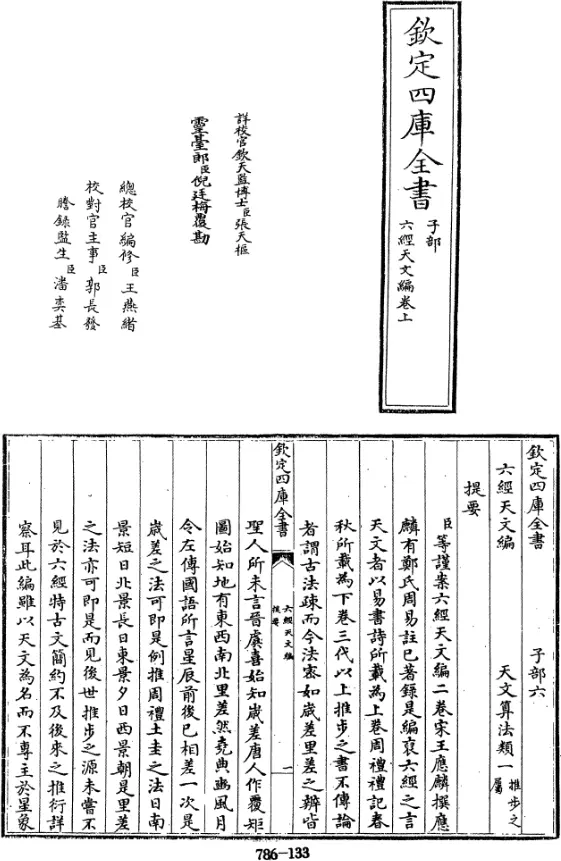 欽定四庫全書
子部
六經天文編卷上
詳校官欽天監博士臣張天樞
靈臺郎臣倪廷梅覆勘
總校官編修臣王燕緒
校對官主事臣郭長發
謄錄監生臣潘奕基
欽定四庫全書 子部六
六經天文編 天文算法類一推步之屬
提要
臣等謹案六經天文編二卷宋王應麟撰應
麟有鄭氏周易註已著錄是編裒六經之言
天文者以易書詩所載為上卷周禮禮記春
秋所載為下卷三代以上推步之書不傳論
者謂古法疎而今法宻如歲差里差之辨皆
欽定四庫全書
六經天文編
提要
一
聖人所未言晉虞喜始知歲差唐人作覆矩
圖始知地有東西南北里差然堯典豳風月
令左傳國語所言星辰前後已相差一次是
歲差之法可即是例推周禮土圭之法日南
景短日北景長日東景夕日西景朝是里差
之法亦可即是而見後世推步之源未嘗不
見於六經特古文簡約不及後來之推衍詳
察耳此編雖以天文為名而不專主於星象
786-133